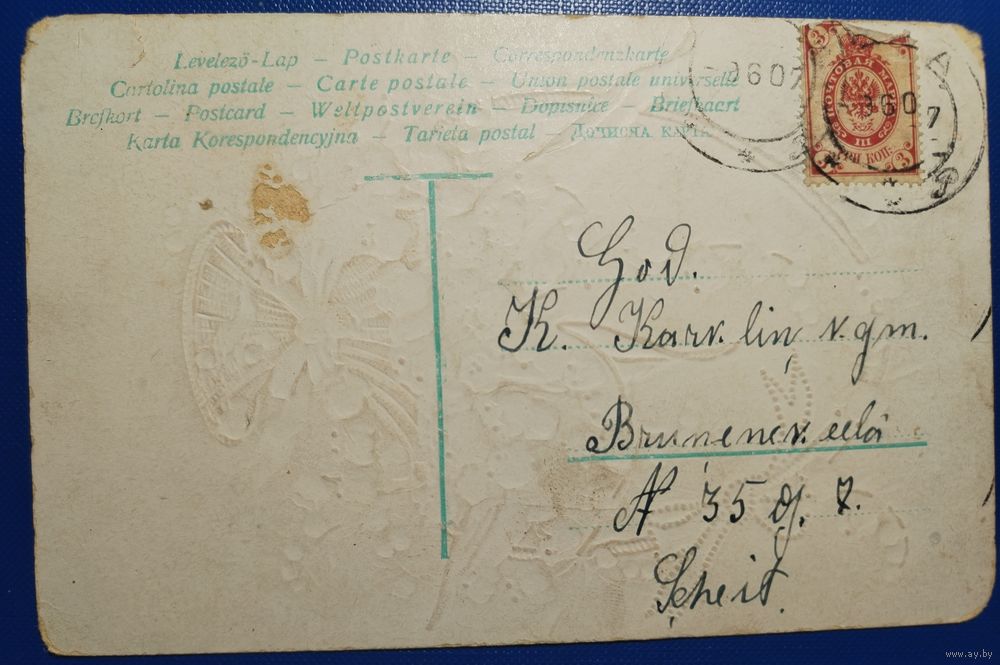 Levelező-Lap – Postkarte – Correspondenzkarte
Cartolina postale – Carte postale – Union postale universelle
Brefkort – Postcard – Weltpostverein – Dopisnice – Briefkaart
Karta Korespondencyjna – Tarjeta postal – Дописна карта
3
ПОЧТОВАЯ
607
60 7
III
3 ТРИ КОП. 3
God.
K. Karklin k. gm.
Bruņeneeku eelâ
№ 35 dz. 7.
Scheit.
www.ay.by